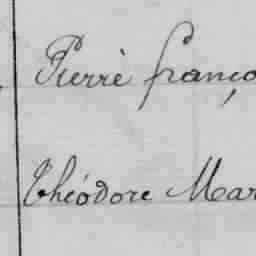 Pierrè franço
Théodore Mar